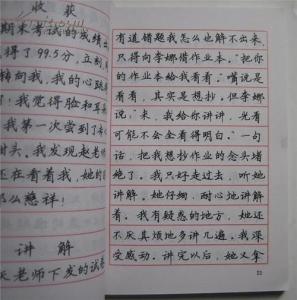 收获
期末考试的成绩出
得了99.5分,立刻,
转向我,我的心跳
!我觉得脸和耳
我第一次尝到了
甜头。我发现赵老
还在看着我,她的
那么慈祥!
讲解
天老师下发的试卷
有道错题我怎么也解不出来,
只得向李娜借作业本。“把你
的作业本给我看看。”嘴说是
看看,其实是想抄。但李娜
说,“来,我给你讲讲,光看
可能不会全看得明白。”一句
话,把我想抄作业的念头堵
绝了。我只好走过去,听她
讲解。她仔细、耐心地讲解
着。我有疑惑的地方,她还
不厌其烦地多讲几遍。我深
受感动。讲完以后,她又拿
53